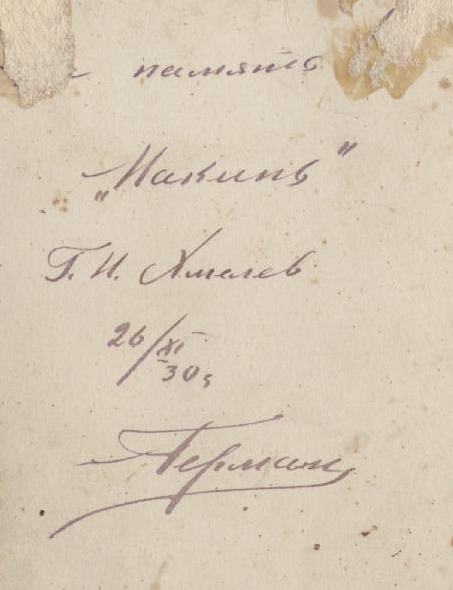 память
„Накипь"
Г. И. Хмелев
26/XI 30 г
Герман